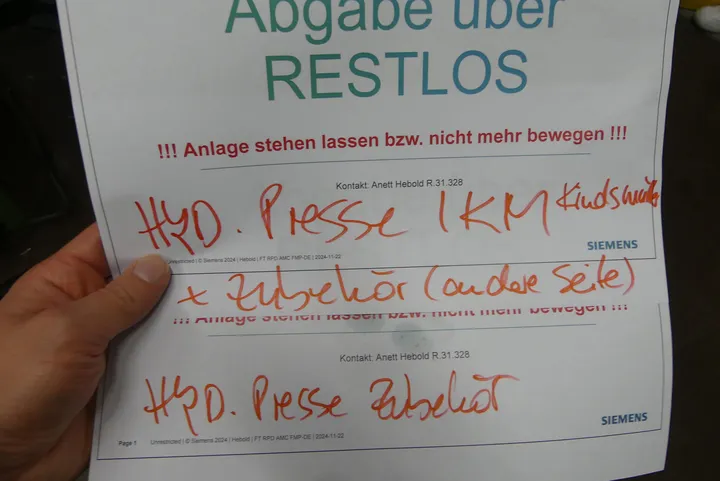 Abgabe über
RESTLOS
!!! Anlage stehen lassen bzw. nicht mehr bewegen !!!
Kontakt: Anett Hebold R.31.328
HYD. Presse 1KM
SIEMENS
Unrestricted | © Siemens 2024 | Hebold | FT RPD AMC FMP-DE | 2024-11-22
+ Zubehör (andere Seite)
!!! Anlage stehen lassen bzw. nicht mehr bewegen !!!
Kontakt: Anett Hebold R.31.328
HYD. Presse Zubehör
SIEMENS
Page 1 Unrestricted | © Siemens 2024 | Hebold | FT RPD AMC FMP-DE | 2024-11-22